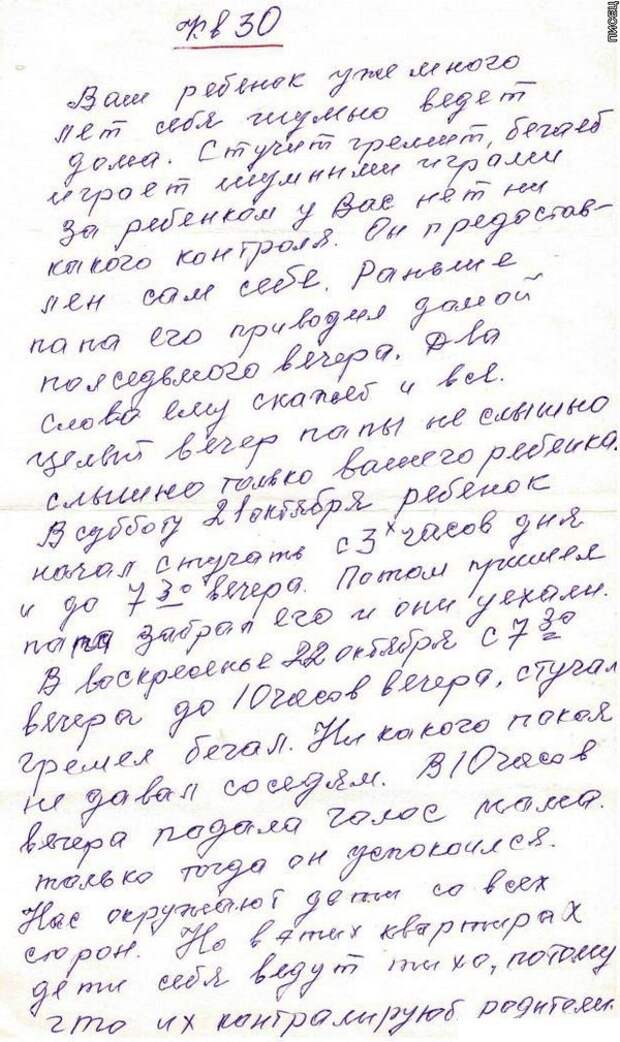 ПИСЕЦ
Кв 30
Ваш ребенок уже много
лет себя шумно ведет
дома. Стучит гремит, бегает
играет шумными играми
За ребенком у Вас нет ни
какого контроля. Он предостав-
лен сам себе. Раньше
папа его приводил домой
полседьмого вечера. Два
слова ему скажет и все.
Целый вечер папы не слышно
слышно только вашего ребенка.
В субботу 21 октября ребенок
начал стучать с 3х часов дня
и до 7 30 вечера. Потом пришел
папа забрал его и они уехали.
В воскресенье 22 октября с 7 30
вечера до 10 часов вечера, стучал
гремел бегал. Ни какого покая
не давал соседям. В 10 часов
вечера падала голос мама.
только тогда он успокоился.
Нас окружают дети со всех
сторон. Но в этих квартирах
дети себя ведут тихо, потому
что их контралируют родители.